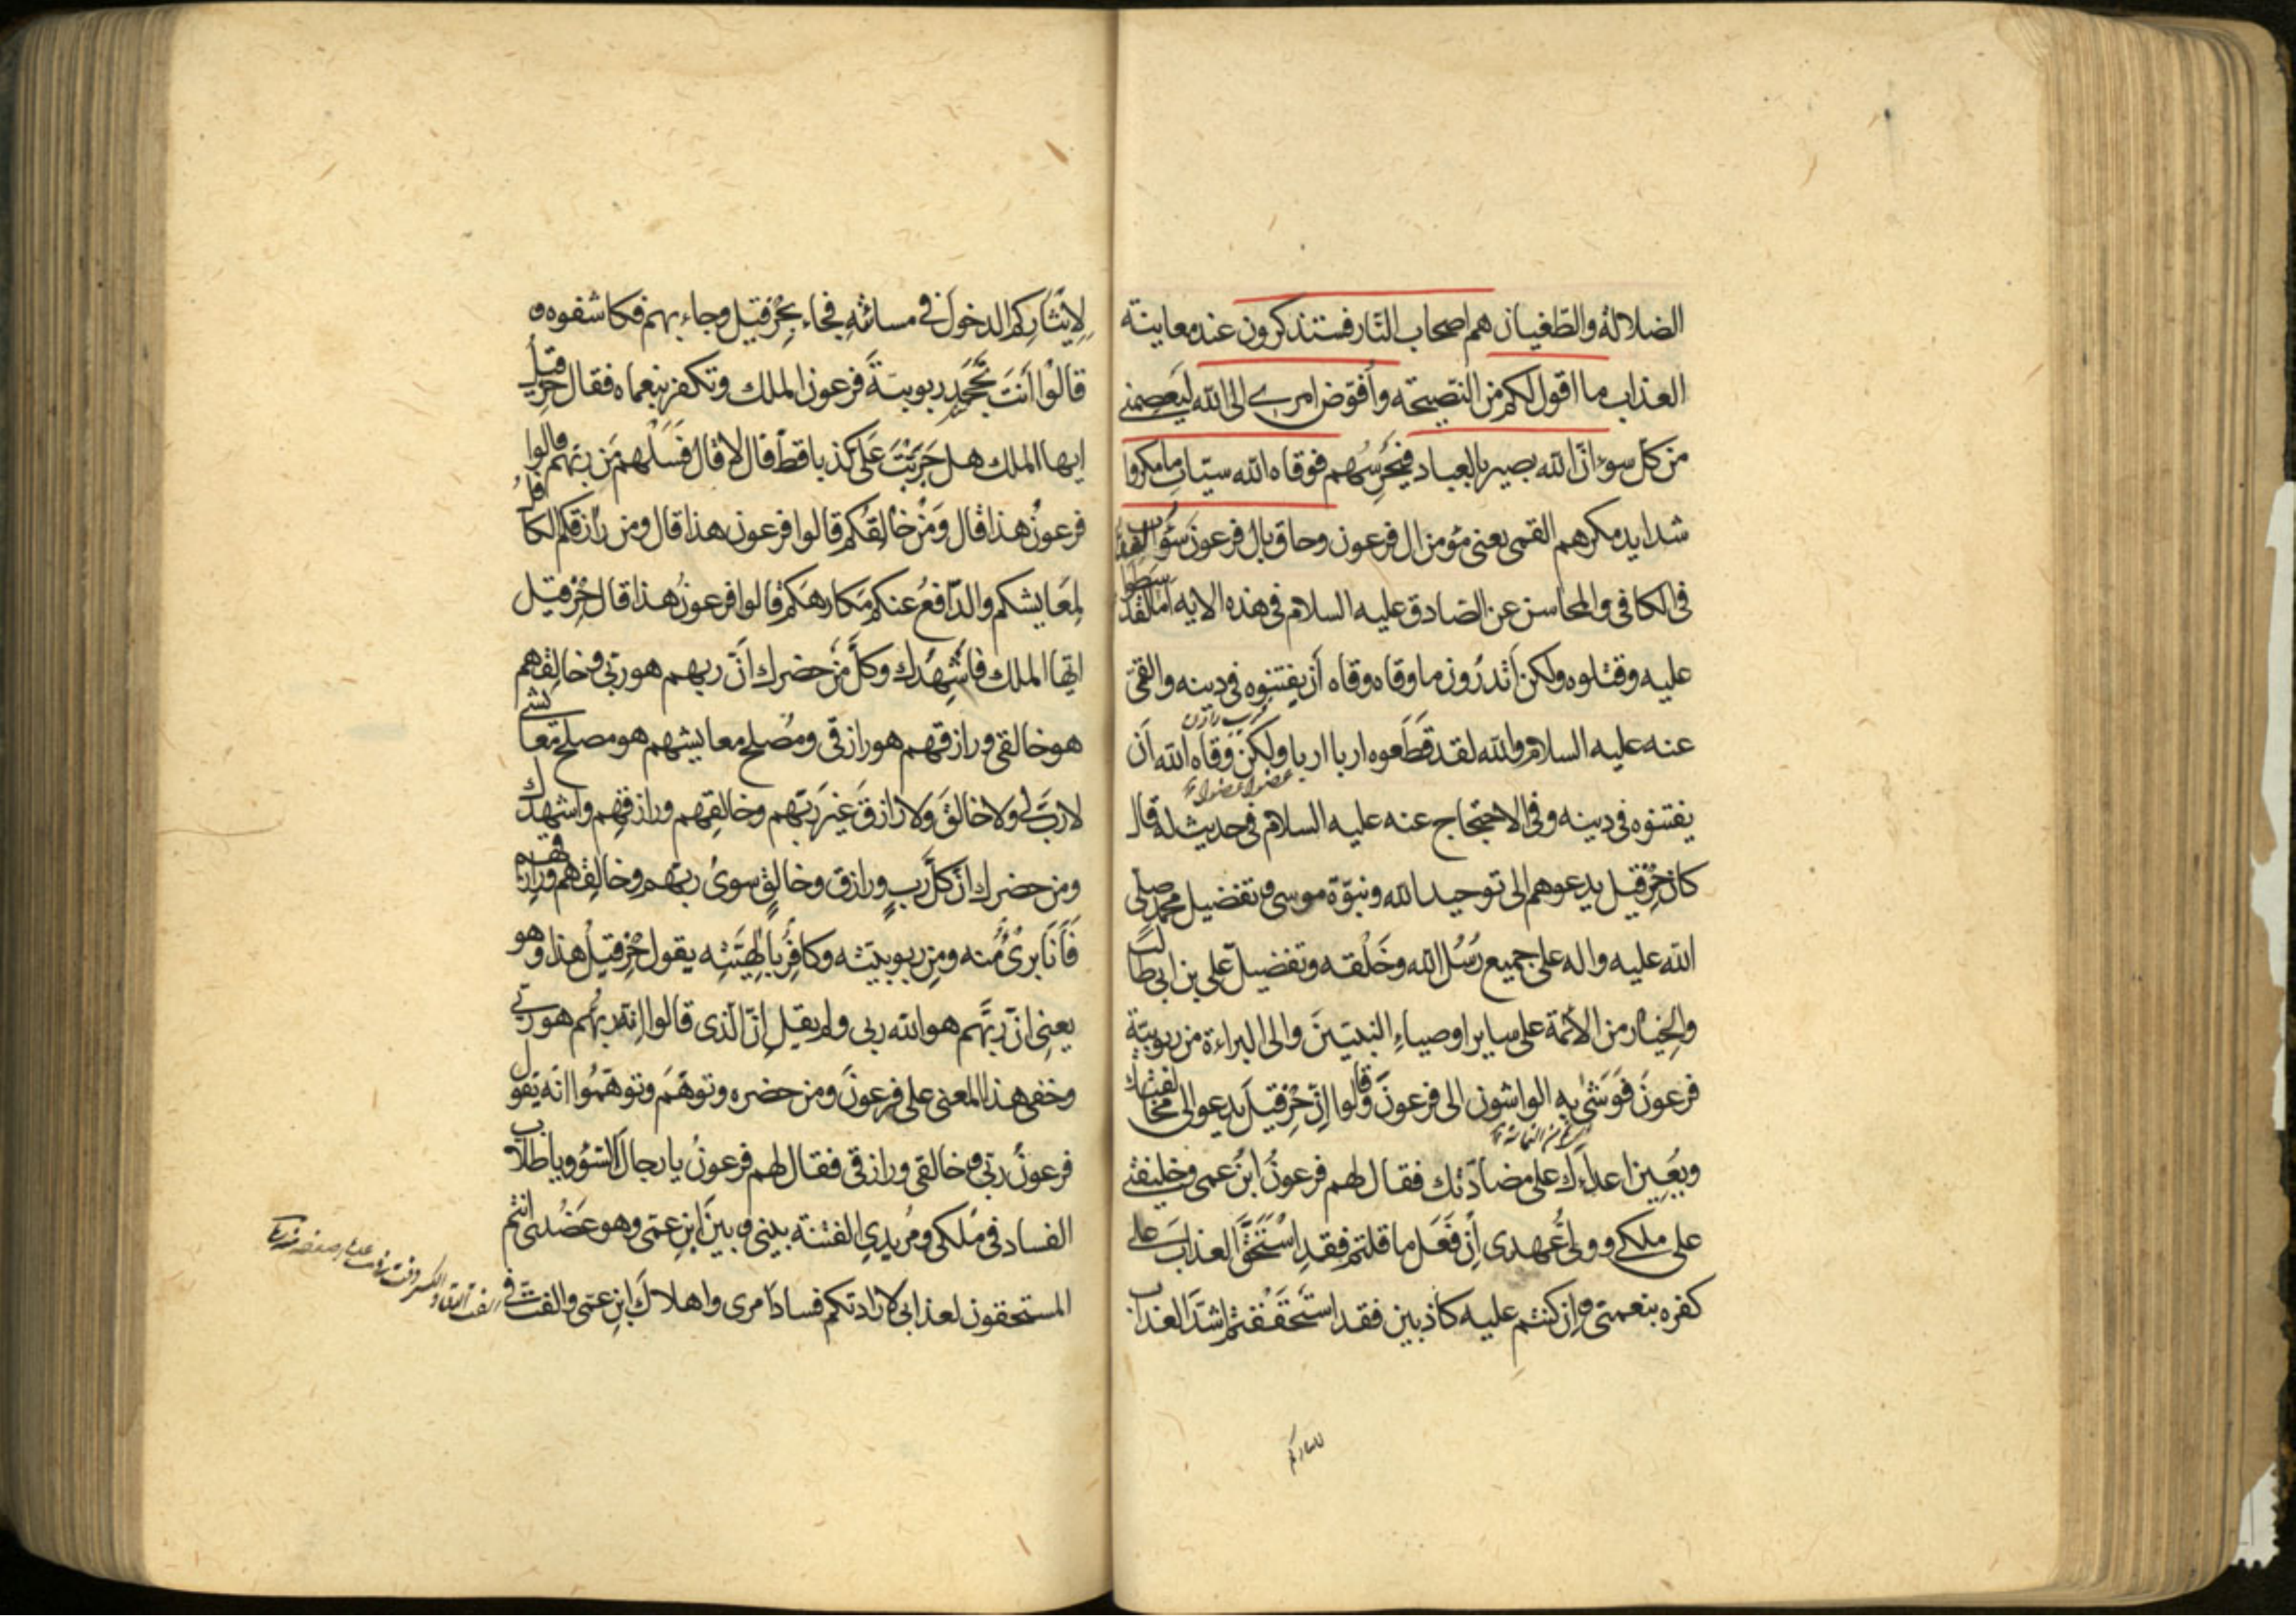 الضلالة والطغيان هم اصحاب النار فستذكرون عند معاينة
العذاب ما اقول لكم من النصيحة وأفوض امرى الى الله ليعصمنى
من كل سوء انّ الله بصير بالعباد فيحرسهم فوقاه الله سيئات ما مكروا
شدايد مكرهم القمى يعنى مؤمن ال فرعون وحاق بال فرعون سُوء العذاب
فى الكافى والمحاسن عن الصادق عليه السلام فى هذه الاية اما لقد سطوا
عليه وقتلوه ولكن أتدرون ما وقاه وقاه أن يفتنوه فى دينه والقمى
عنه عليه السلام والله لقد قَطَعوه اربا اربا ولكن وقاه الله أن
عضوا عضوا
يفتنوه فى دينه وفى الاحتجاج عنه عليه السلام فى حديث له قال
كان حِزْقيل يدعوهم الى توحيد الله ونبوّة موسى وتفضيل محمد صلى
الله عليه واله على جميع رُسُل الله وخَلْقه وتفضيل على بن ابى طالب
والخِيار من الأئمة على ساير اوصياءِ النبيّينَ والى البراءة من ربوبيّة
فرعونَ فَوَشٰى به الواشون الى فرعونَ وقالوا اِنّ حِزْقيلَ يدعو الى مخالفتك
ويُعِين اعداءَك على مضادّتك فقال لهم فرعونُ ابنُ عمى وخليفتى
على ملكى وولىّ عهدى أِن فَعَل ما قلتم فقدِ اسْتَحَقَّ العذابَ على
كفره بنعمتى وان كنتم عليه كاذبين فقد استَحقَقْتم اشدَّ العذاب
لايثاركم
لِايثارِكم الدخولَ فى مسائته فجاء بِحِزْقيل وجاء بهم فكاشفوه و
قالُوا أنتَ تَجْحَد ربوبيّةَ فرعون الملك وتكفر بنعماه فقال حزقيل
ايها الملك هل جَرَّبْتَ عَلَى كذبا قطّ قال لا قال فَسَلْهم مَن ربّهم قالوا
فرعونُ هذا قال وَمَنْ خالِقُكم قالوا فرعون هذا قال ومن رازقكم الكافل
لِمَعَايشكم والدّافعُ عنكم مَكارهَكم قالوا فرعونُ هذا قال حِزْقيل
ايّها الملك فأُشهِدُك وكلَّ مَنْ حضرك أنّ ربهم هو ربّى وخالِقهم
هو خالقى ورازقهم هو رازقى ومُصلحَ معايشهم هو مصلح معايشى
لا ربَّ لى ولا خالقَ ولا رازقَ غيرَ ربّهم وخالِقهم ورازقِهم واشهدك
ومن حضرك انّ كلَّ رَبٍ ورازق وخالقٍ سوىٰ ربّهم وخالِقهم ورازقهم
فَأنَا برئٌ مُنه ومِن ربوبيّته وكافِرٌ بِالٰهِيَّتِه يقول حِزْقيلُ هذا وهو
يعنِى انّ ربَّهم هو الله ربى ولم يقل اِنّ الّذى قالوا اِنّه ربُّهم هو ربّى
وخفى هذا المعنى على فرعونَ ومن حضره وتوهَّمَ وتوهّمُوا انّه يَقول
فرعونُ ربّى وخالقى ورازقى فقال لهم فرعونُ يا رجالَ السّوْءِ ويا طلّاب
الفساد فى مُلكى ومُريدِى الفتنة بينى وبينَ ابنِ عمّى وهو عَضُدى انتم
المستحقون لعذابى لارادتكم فسادَ امرى واهلاكَ ابنِ عمّى والفتَّ فى